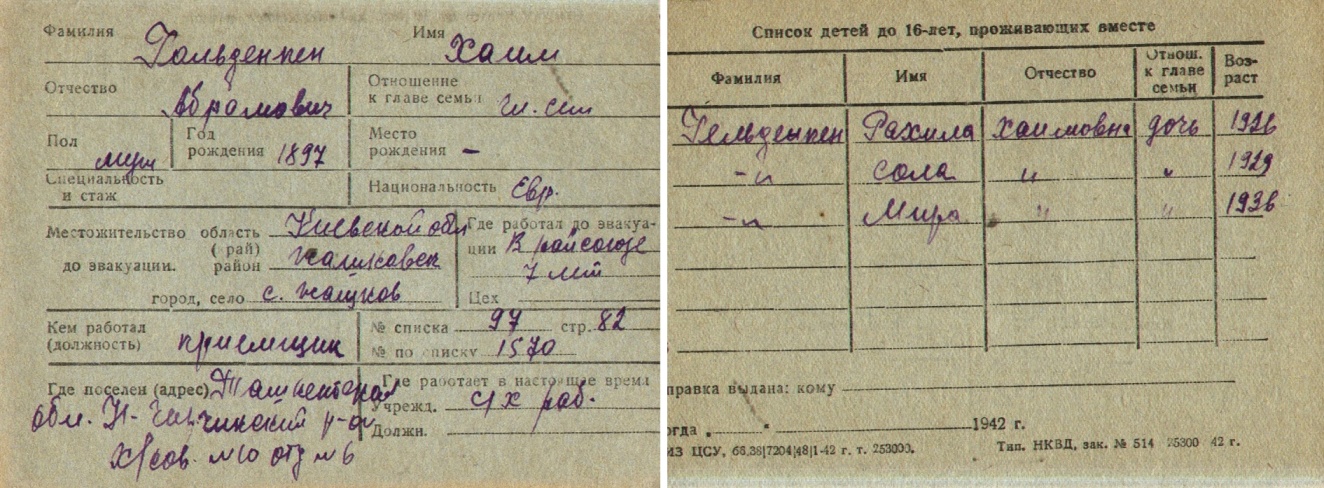 Фамилия Гольденкен Имя Хаим
Отчество Абрамович Отношение к главе семьи гл. сем
Пол муж Год рождения 1897 Место рождения –
Специальность и стаж Национальность Евр.
Местожительство до эвакуации. область (край) Киевской обл
район Жашковск
город, село с. Жашков
Где работал до эвакуации В райсоюзе
7 лет
Цех
Кем работал (должность) приемщик
№ списка 97 стр. 82
№ по списку 1570
Где поселен (адрес) Ташкентская
обл. Н-Чирчикский р-он
х/сов. №10 отд №6
Где работает в настоящее время
Учрежд. с/х раб.
Должн.
Список детей до 16-лет, проживающих вместе
Фамилия Имя Отчество Отнош. к главе семьи Возраст
Гельденкен Рахила Хаимовна дочь 1926
-"- Сола " " 1929
-"- Мира " " 1936
правка выдана: кому
огда 1942 г.
ИЗ ЦСУ, 66,38|7204|48|1-42 г. т. 253000. Тип. НКВД, зак. № 514 25300 42 г.